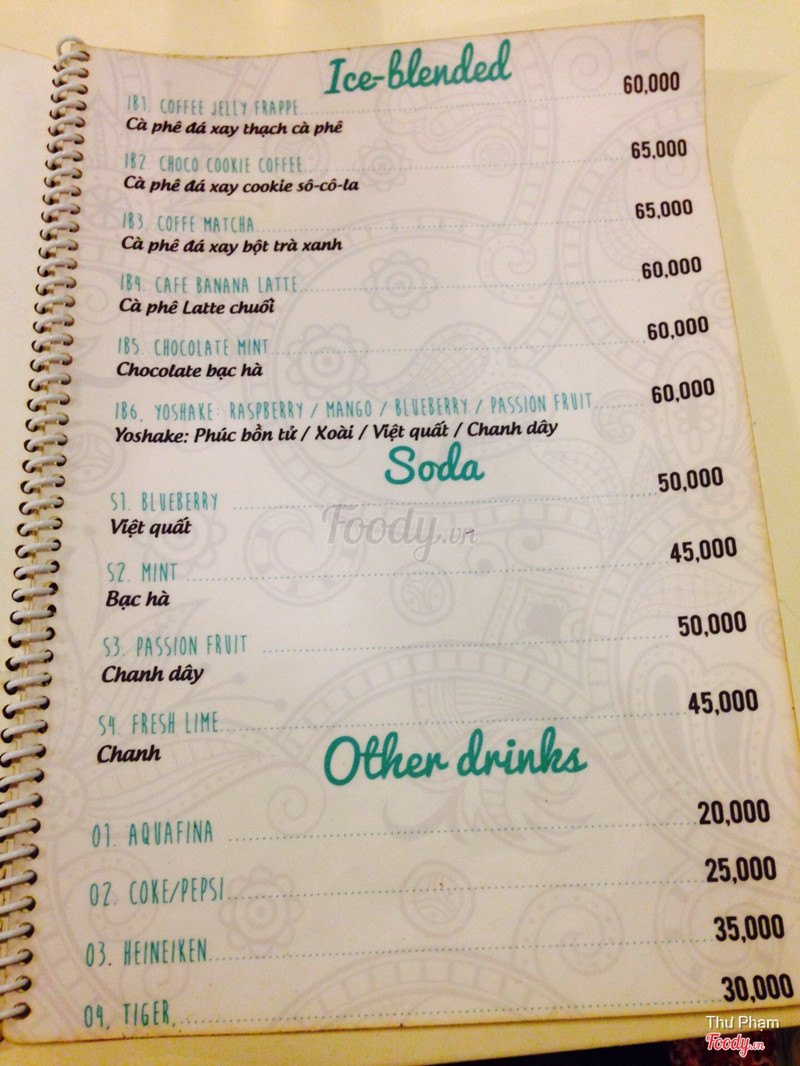 Ice-blended
IB1. COFFEE JELLY FRAPPE 60,000
Cà phê đá xay thạch cà phê
IB2. CHOCO COOKIE COFFEE 65,000
Cà phê đá xay cookie sô-cô-la
IB3. COFFE MATCHA 65,000
Cà phê đá xay bột trà xanh
IB4. CAFE BANANA LATTE 60,000
Cà phê Latte chuối
IB5. CHOCOLATE MINT 60,000
Chocolate bạc hà
IB6. YOSHAKE: RASPBERRY / MANGO / BLUEBERRY / PASSION FRUIT 60,000
Yoshake: Phúc bồn tử / Xoài / Việt quất / Chanh dây
Soda
S1. BLUEBERRY 50,000
Việt quất
Foody.vn
S2. MINT 45,000
Bạc hà
S3. PASSION FRUIT 50,000
Chanh dây
S4. FRESH LIME 45,000
Chanh
Other drinks
01. AQUAFINA 20,000
02. COKE/PEPSI 25,000
03. HEINEIKEN 35,000
04. TIGER 30,000
Thư Phạm
Foody.vn